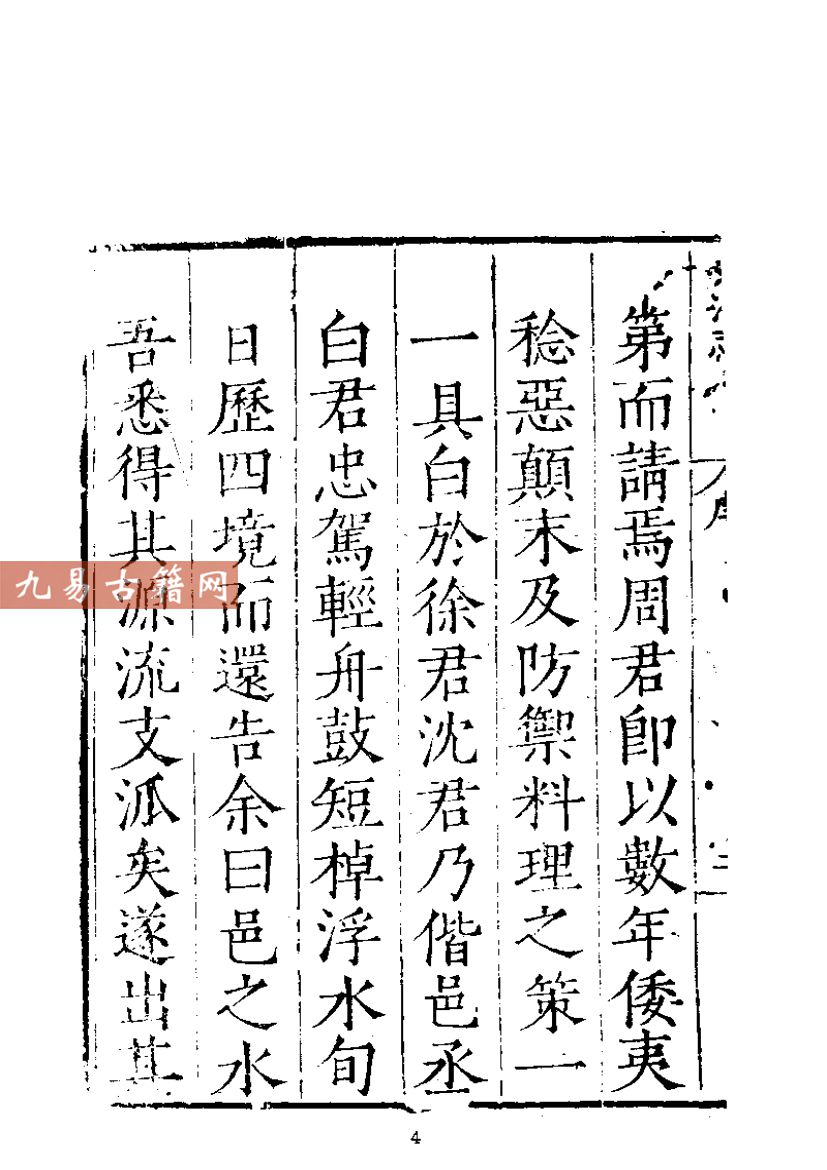 第而請焉周君即以數年倭夷
稔惡顛末及防禦料理之策一
一具白於徐君沈君乃偕邑丞
白君忠駕輕舟鼓短棹浮水旬
日歷四境而還告余曰邑之水
吾悉得其源流支派矣遂出其
九易古籍网
4